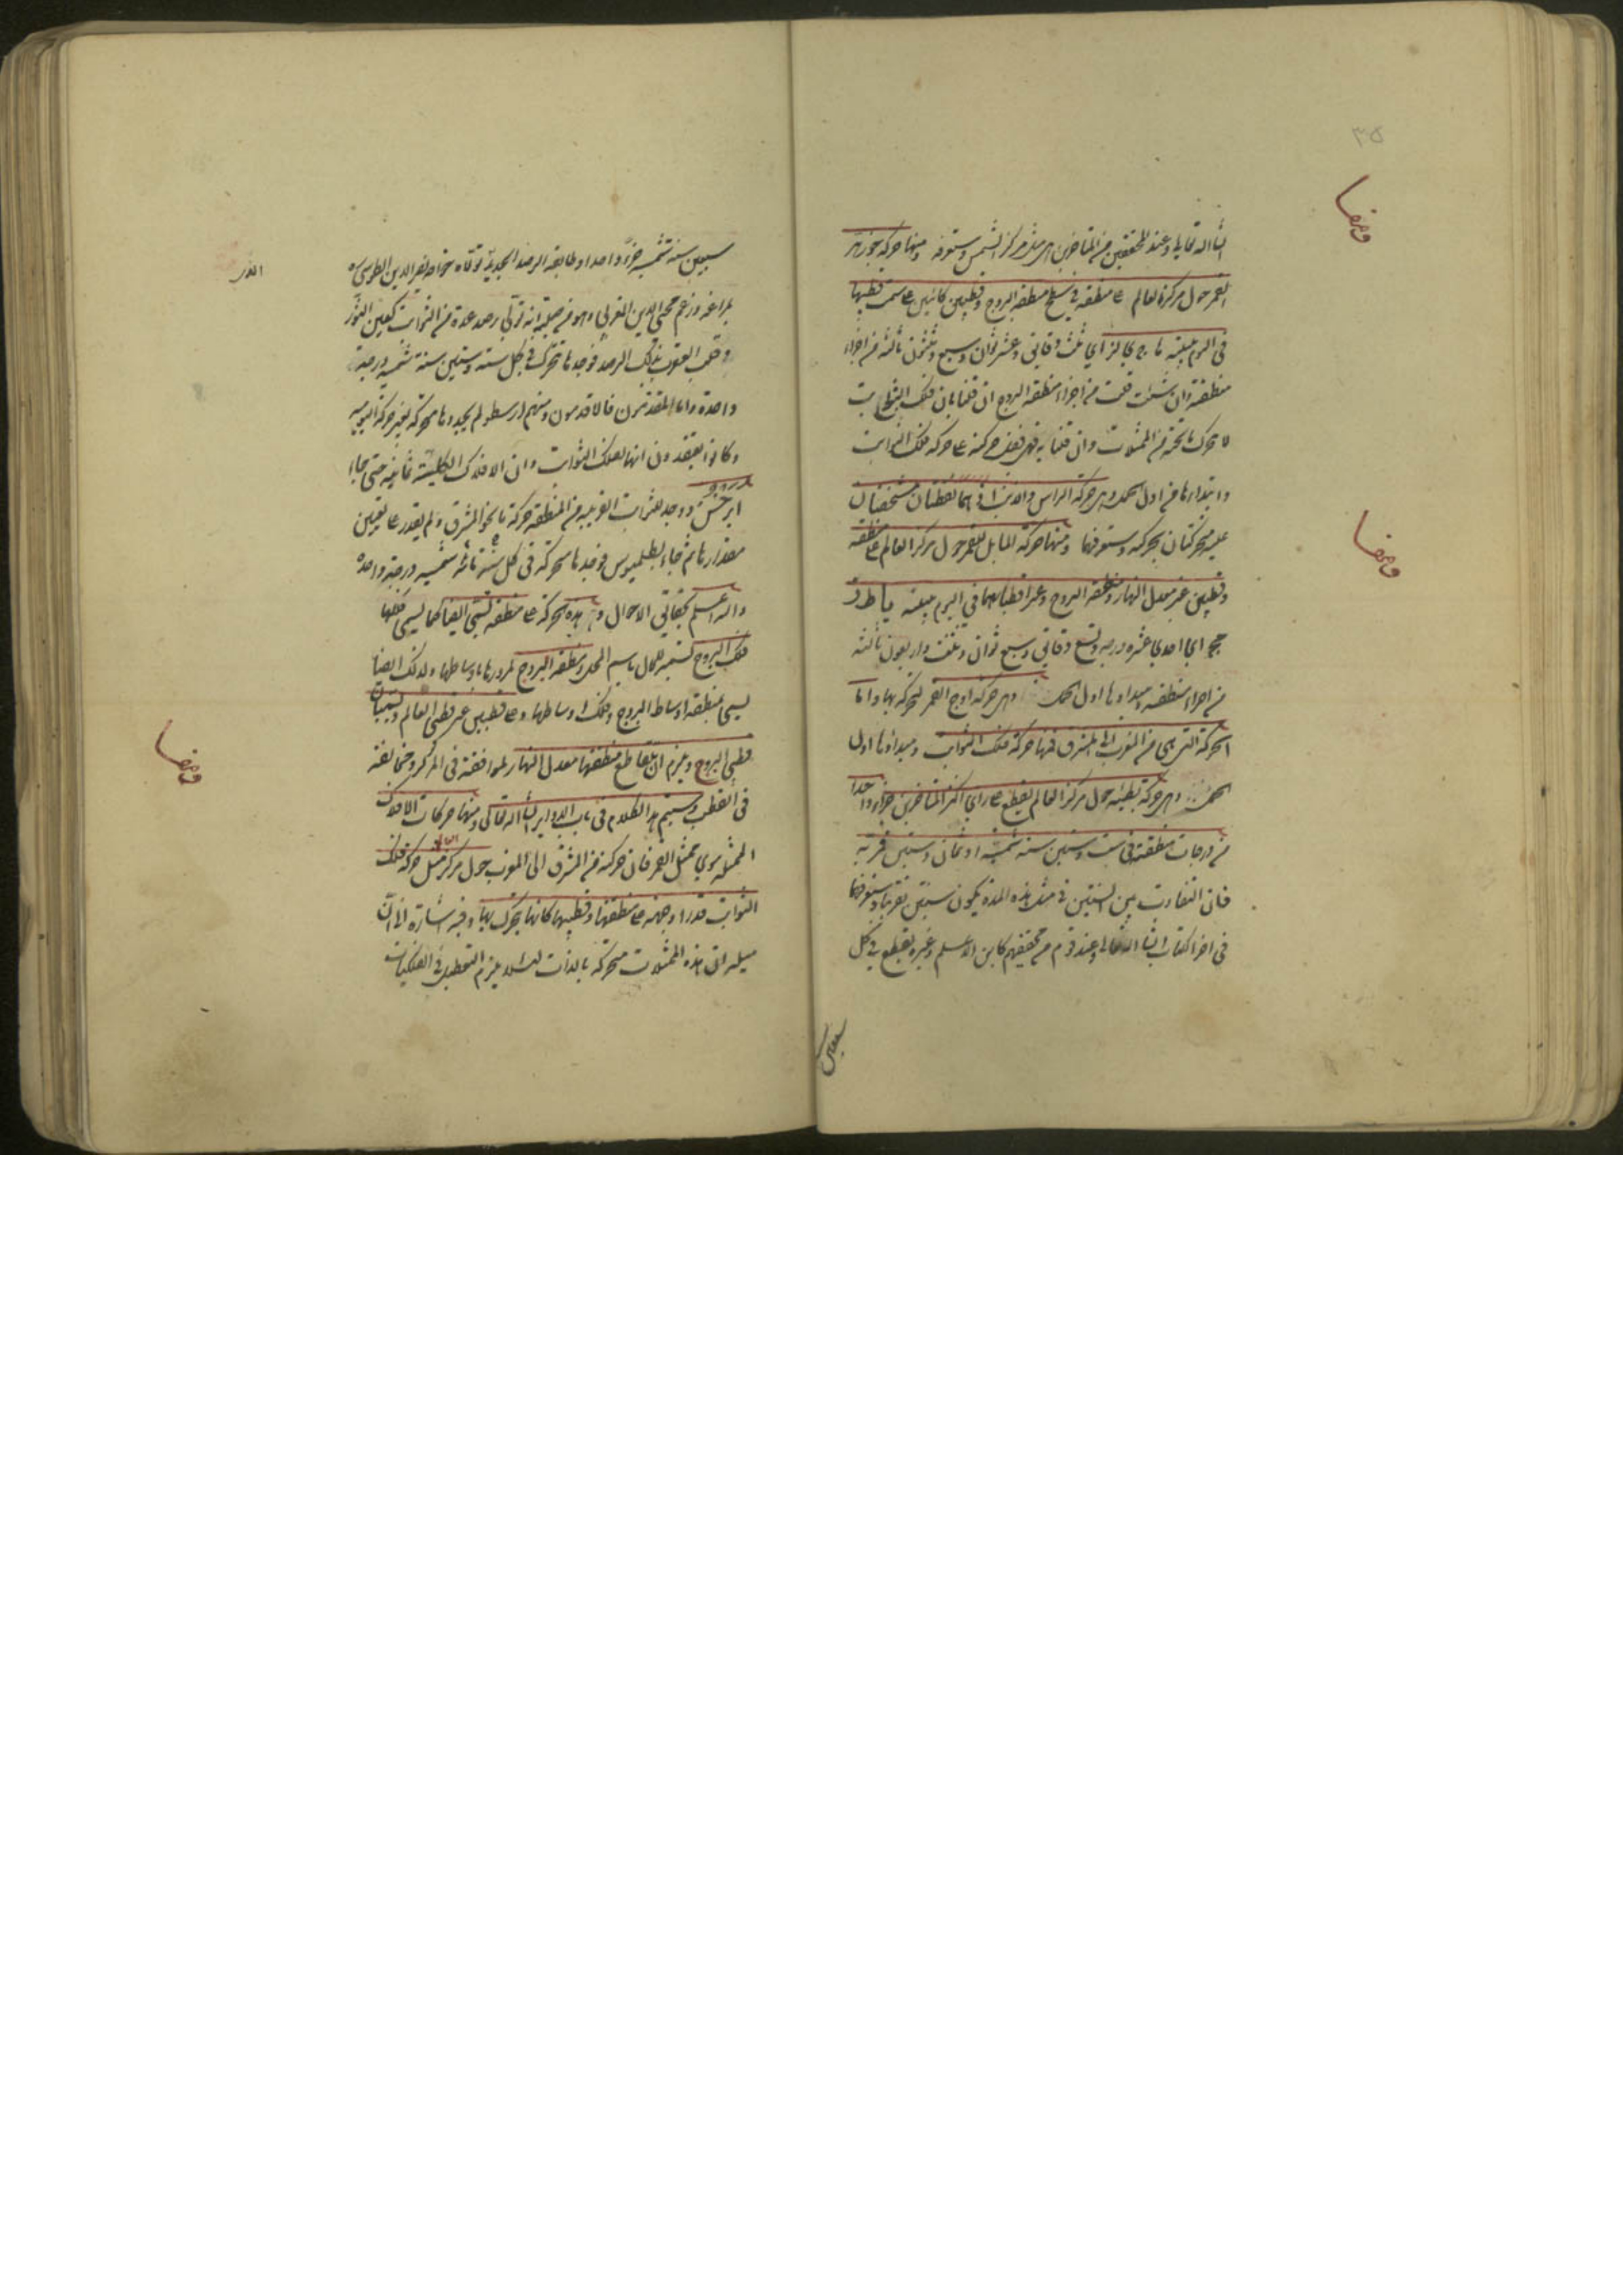 ٣٥
ان شاء الله تعالى وعند المحققين من المتأخرين هي مثل مركز الشمس وستعرفه ومنها حركة جوزهر
القمر حول مركز العالم على منطقة في سطح منطقة البروج وقطبين كائنين على سمت قطبيها
في اليوم بليلته ثلث دقائق وعشر ثوان وسبع وثلثون ثالثة من اجزاء
منطقته وان شئت قلت من اجزاء منطقة البروج ان قلنا بان فلك الثوابت
لا تحرك ما تحته من الممثلات وان قلنا به فهي فضل حركته على حركة فلك الثوابت
وابتداؤها من اول الحمل وهي حركة الراس والذنب اذ هما نقطتان مشخصتان
عليه متحركتان بحركته وستعرفها ومنها حركة المايل للقمر حول مركز العالم على منطقة
وقطبين غير معدل النهار ومنطقة البروج وغير اقطابهما في اليوم بليلته يا ط ز
مج اي احدي عشرة درجة وتسع دقائق وسبع ثوان وثلث واربعون ثالثة
من اجزاء منطقته ومبداؤها اول الحمل وهي حركة اوج القمر لتحركه بها واما
الحركة التي هي من المغرب الى المشرق فمنها حركة فلك الثوابت ومبداؤها اول
الحمل وهي حركة بطيئة حول مركز العالم يقطع على راي اكثر المتأخرين جزءا واحدا
من درجات منطقته في ست وستين سنة شمسية او ثمان وستين قمرية
فان التفاوت بين السنتين في مثل هذه المدة يكون سنتين تقريبا وستعرفها
في اخر الكتاب ان شاء الله تعالى وعند قوم من محققيهم كابن الاعلم وغيره يقطع في كل
سبعين
سبعين سنة شمسية جزءا واحدا وطابقه الرصد الجديد الذي تولاه خواجه نصير الدين الطوسي
بمراغة وزعم محيي الدين المغربي وهو من جملته انه تولى رصد عدة من الثوابت كعين الثور
وقلب العقرب بذلك الرصد فوجدها تتحرك في كل ستة وستين سنة شمسية درجة
واحدة واما المتقدمون فالاقدمون ومنهم ارسطو لم يجدوها متحركة بغير حركة اليومية
وكانوا يعتقدون انها لفلك الثوابت وان الافلاك الكلية ثمانية حتى جاء
ابرخس ووجد للثوابت القريبة من المنطقة حركة ما نحو المشرق ولم يقدر على تعيين
مقدارها ثم جاء بطلميوس فوجدها متحركة في كل مائة سنة شمسية درجة واحدة
والله اعلم بحقائق الاحوال وهذه الحركة على منطقة تسمى ايضا كما يسمى فلكها
فلك البروج تسمية للمحل باسم الحال ومنطقة البروج لمرورها باوساطها ولذلك ايضا
يسمى بمنطقة اوساط البروج وفلك اوساطها وعلى قطبين غير قطبي العالم وتسميان
قطبي البروج ويلزم ان يتقاطع منطقتها معدل النهار لموافقته في المركز ومخالفته
في القطب وسيتم هذا الكلام في باب الدواير ان شاء الله تعالى ومنها حركات الافلاك
الممثلة سوي ممثل القمر فان حركته من المشرق الى المغرب حول مركز العالم مثل حركة فلك
الثوابت قدرا وجهة على منطقتها وقطبيها كانها يتحرك بها وفيه اشارة الى ان
ميله ان هذه الممثلات متحركة بالذات لئلا يلزم التعطيل في الفلكيات